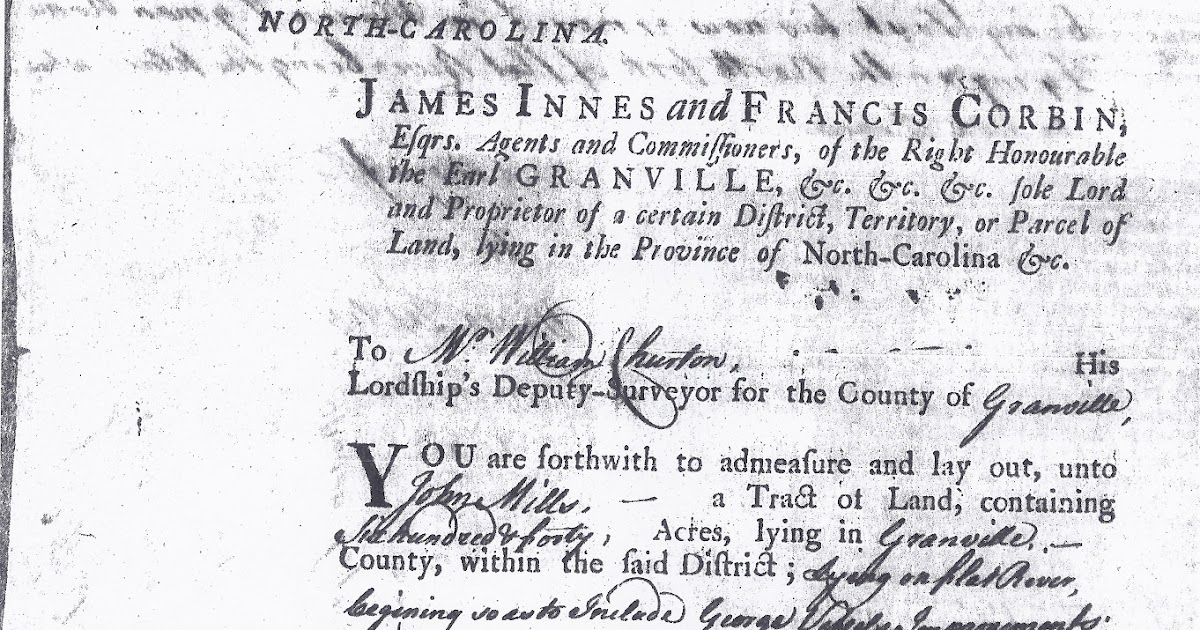 NORTH-CAROLINA.
JAMES INNES and FRANCIS CORBIN,
Eſqrs. Agents and Commiſſioners, of the Right Honourable
the Earl GRANVILLE, &c. &c. &c. ſole Lord
and Proprietor of a certain Diſtrict, Territory, or Parcel of
Land, lying in the Province of North-Carolina &c.
To Mr. William Churton, His
Lordſhip's Deputy-Surveyor for the County of Granville,
YOU are forthwith to admeaſure and lay out, unto
John Mills. — a Tract of Land, containing
Six hundred & forty, Acres, lying in Granville. —
County, within the ſaid Diſtrict; Lying on flat River,
begining so as to Include George